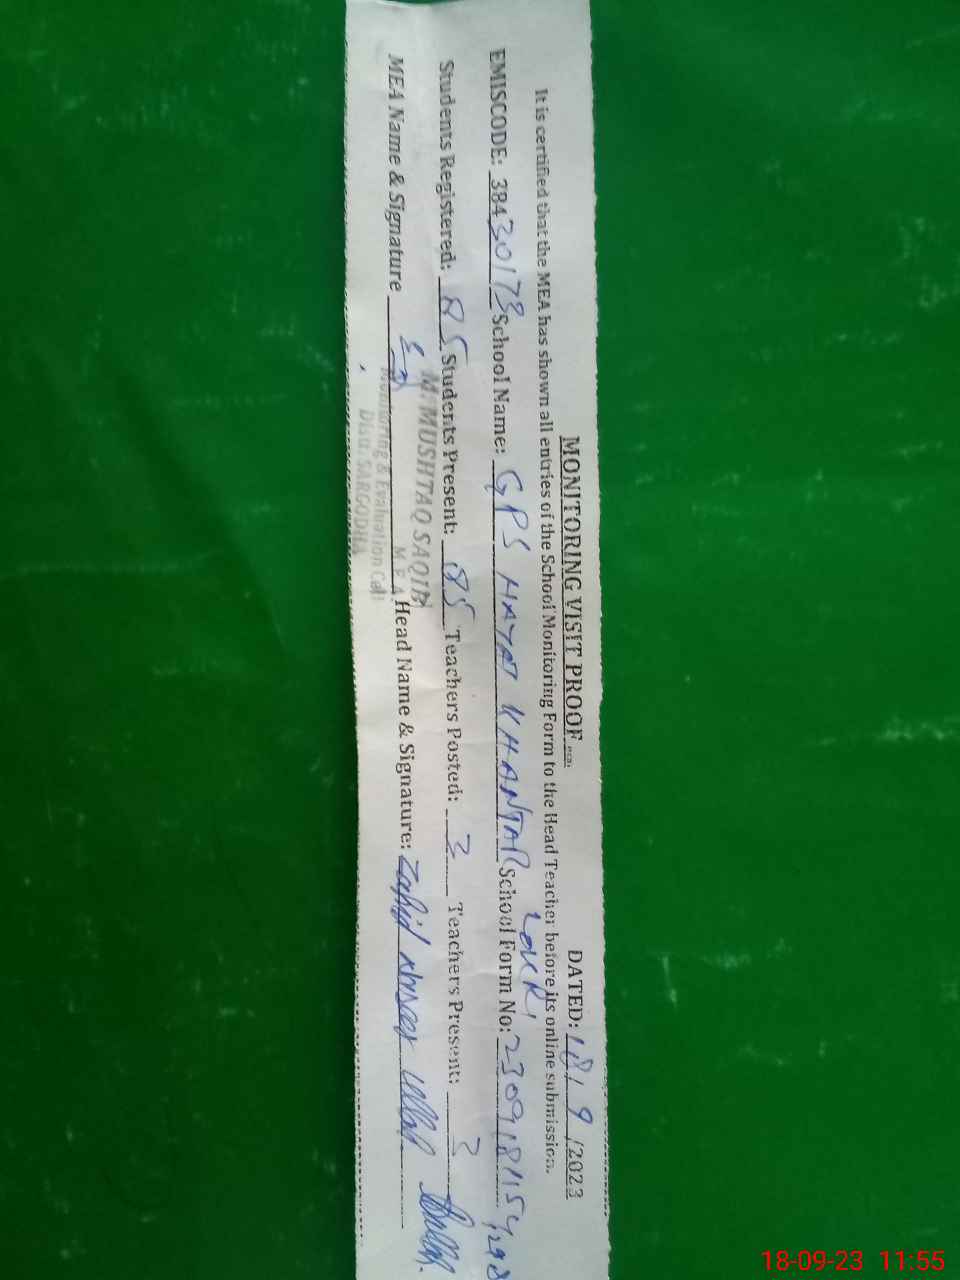 MONITORING VISIT PROOF DATED: 18/9/2023
It is certified that the MEA has shown all entries of the School Monitoring Form to the Head Teacher before its online submission.
EMISCODE: 38430173 School Name: GPS HAYAT KHANTAR School Form No: 2309181154
Students Registered: 85 Students Present: 85 Teachers Posted: 3 Teachers Present:
MEA Name & Signature Head Name & Signature: Zahid
M. MUSHTAQ SAQIB
M E A
Monitoring & Evaluation Cell
Distt. SARGODHA
18-09-23 11:55